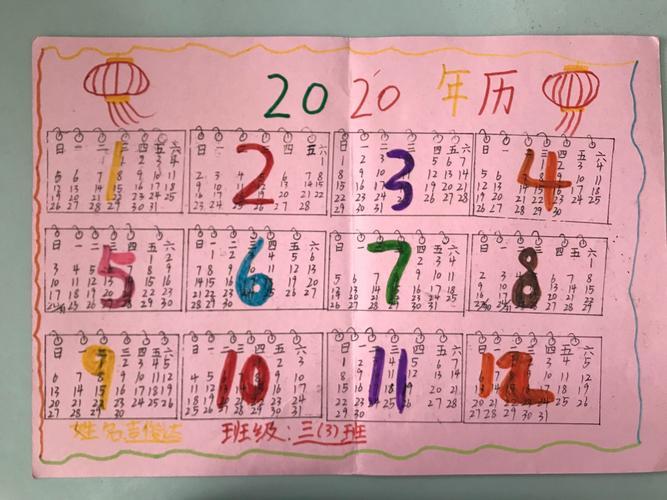 2020 年历
1
日 一 二 三 四 五 六
1 2 3 4
5 6 7 8 9 10 11
12 13 14 15 16 17 18
19 20 21 22 23 24 25
26 27 28 29 30 31
2
日 一 二 三 四 五 六
1
2 3 4 5 6 7 8
9 10 11 12 13 14 15
16 17 18 19 20 21 22
23 24 25 26 27 28 29
3
日 一 二 三 四 五 六
1 2 3 4 5 6 7
8 9 10 11 12 13 14
15 16 17 18 19 20 21
22 23 24 25 26 27 28
29 30 31
4
日 一 二 三 四 五 六
1 2 3 4
5 6 7 8 9 10 11
12 13 14 15 16 17 18
19 20 21 22 23 24 25
26 27 28 29 30
5
日 一 二 三 四 五 六
1 2
3 4 5 6 7 8 9
10 11 12 13 14 15 16
17 18 19 20 21 22 23
25 26 27 28 29 30
6
日 一 二 三 四 五 六
1 2 3 4 5 6
7 8 9 10 11 12 13
14 15 16 17 18 19 20
21 22 23 24 25 26 27
28 29 30
7
日 一 二 三 四 五 六
1 2 3 4
5 6 7 8 9 10 11
12 13 14 15 16 17 18
19 20 21 22 23 24 25
26 27 28 29 30 31
8
日 一 二 三 四 五 六
1
2 3 4 5 6 7 8
9 10 11 12 13 14 15
16 17 18 19 20 21 22
25 26 27 28 29
9
日 一 二 三 四 五 六
1 2 3 4 5
6 7 8 9 10 11 12
13 14 15 16 17 18 19
20 21 22 23 24 25 26
27 28 29 30
10
日 一 二 三 四 五 六
1 2 3
4 5 6 7 8 9 10
11 12 13 14 15 16 17
18 19 20 21 22 23 24
25 26 27 28 29 30 31
11
日 一 二 三 四 五 六
1 2 3 4 5 6 7
8 9 10 11 12 13 14
15 16 17 18 19 20 21
22 23 24 25 26 27 28
29 30
12
日 一 二 三 四 五 六
1 2 3 4 5
6 7 8 9 10 11 12
13 14 15 16 17 18 19
20 21 22 23 24 25 26
27 28 29 30 31
姓名
班级：三(3)班